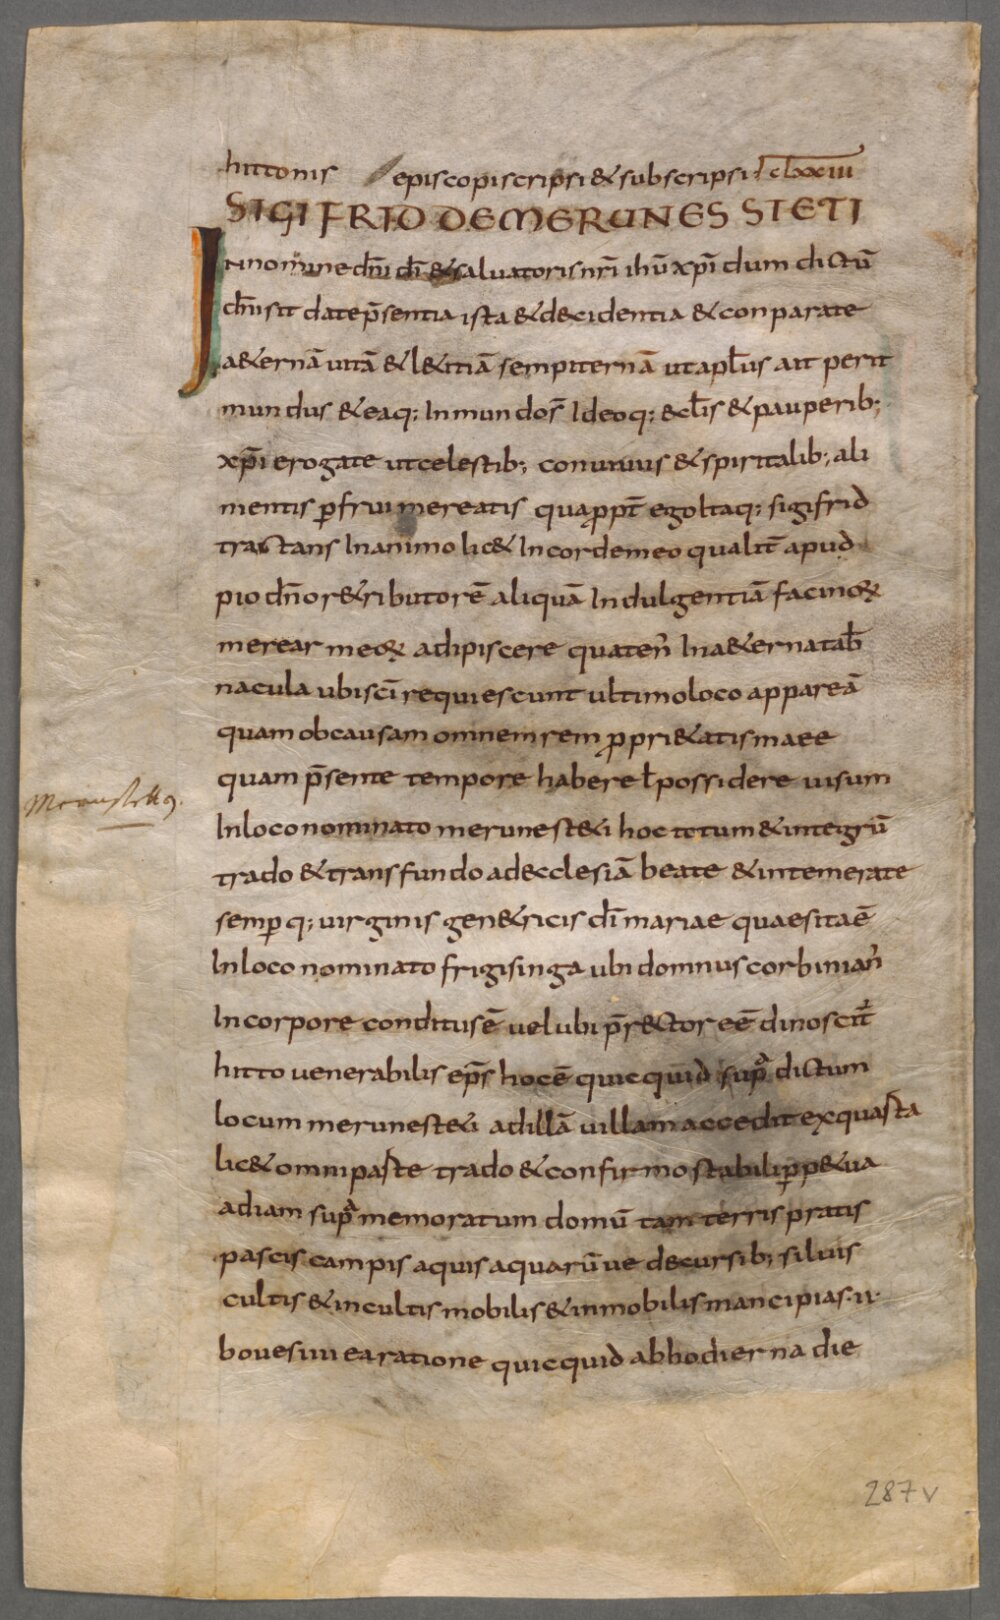 hittonis episcopi scripsi & subscripsi clxxiii
SIGIFRID DE MERUNESSTETI
In nomine dn̄i dī & saluatoris nr̄i ihū xp̄i dum dictū
dn̄i sit date p̄sentia ista & decidentia & conparate
a&ernā uitā & l&itiā sempiternā ut apl̄us ait perit
mundus & eaq; In mundo s̄ Ideoq; eccl̄is & pauperib;
xp̄i erogate ut celestib; conuiuiis & spiritalib; ali
mentis ꝑfrui mereatis quaꝓpt̄ ego Itaq; sigifrid
tractans In animo lic& In corde meo qualit̄ apud
pio dn̄o r&ributorē aliquā Indulgentiā facinoꝝ
merear meoꝝ adipiscere quaten̄ In a&erna tab̄
nacula ubi scī requiescunt ultimo loco appareā
quam ob causam omnem rem ꝓpri&atis maee
quam p̄sente tempore habere ł possidere uisum
In loco nominato merunest&i hoc totum & integrū
trado & transfundo ad ecclesiā beate & intemerate
semꝑq; uirginis gen&ricis dī mariae quae sita ē
In loco nominato frigisinga ubi domnus corbinian̄
In corpore conditus ē uel ubi p̄ rector eē dinoscit̄
hitto uenerabilis ep̄s hoc ē quicquid supͣ dictum
locum merunest&i ad illā uillam accedit ex quasta
lic& omni paste trado & confirmo stabili ꝑp&ua
ad iam supͣ memoratum domū tam terris pratis
pascis campis aquis aquarū ue decursib; siluis
cultis & incultis mobilis & inmobilis mancipias · ii ·
boues iiii ea ratione quicquid ab hodierna die
287v